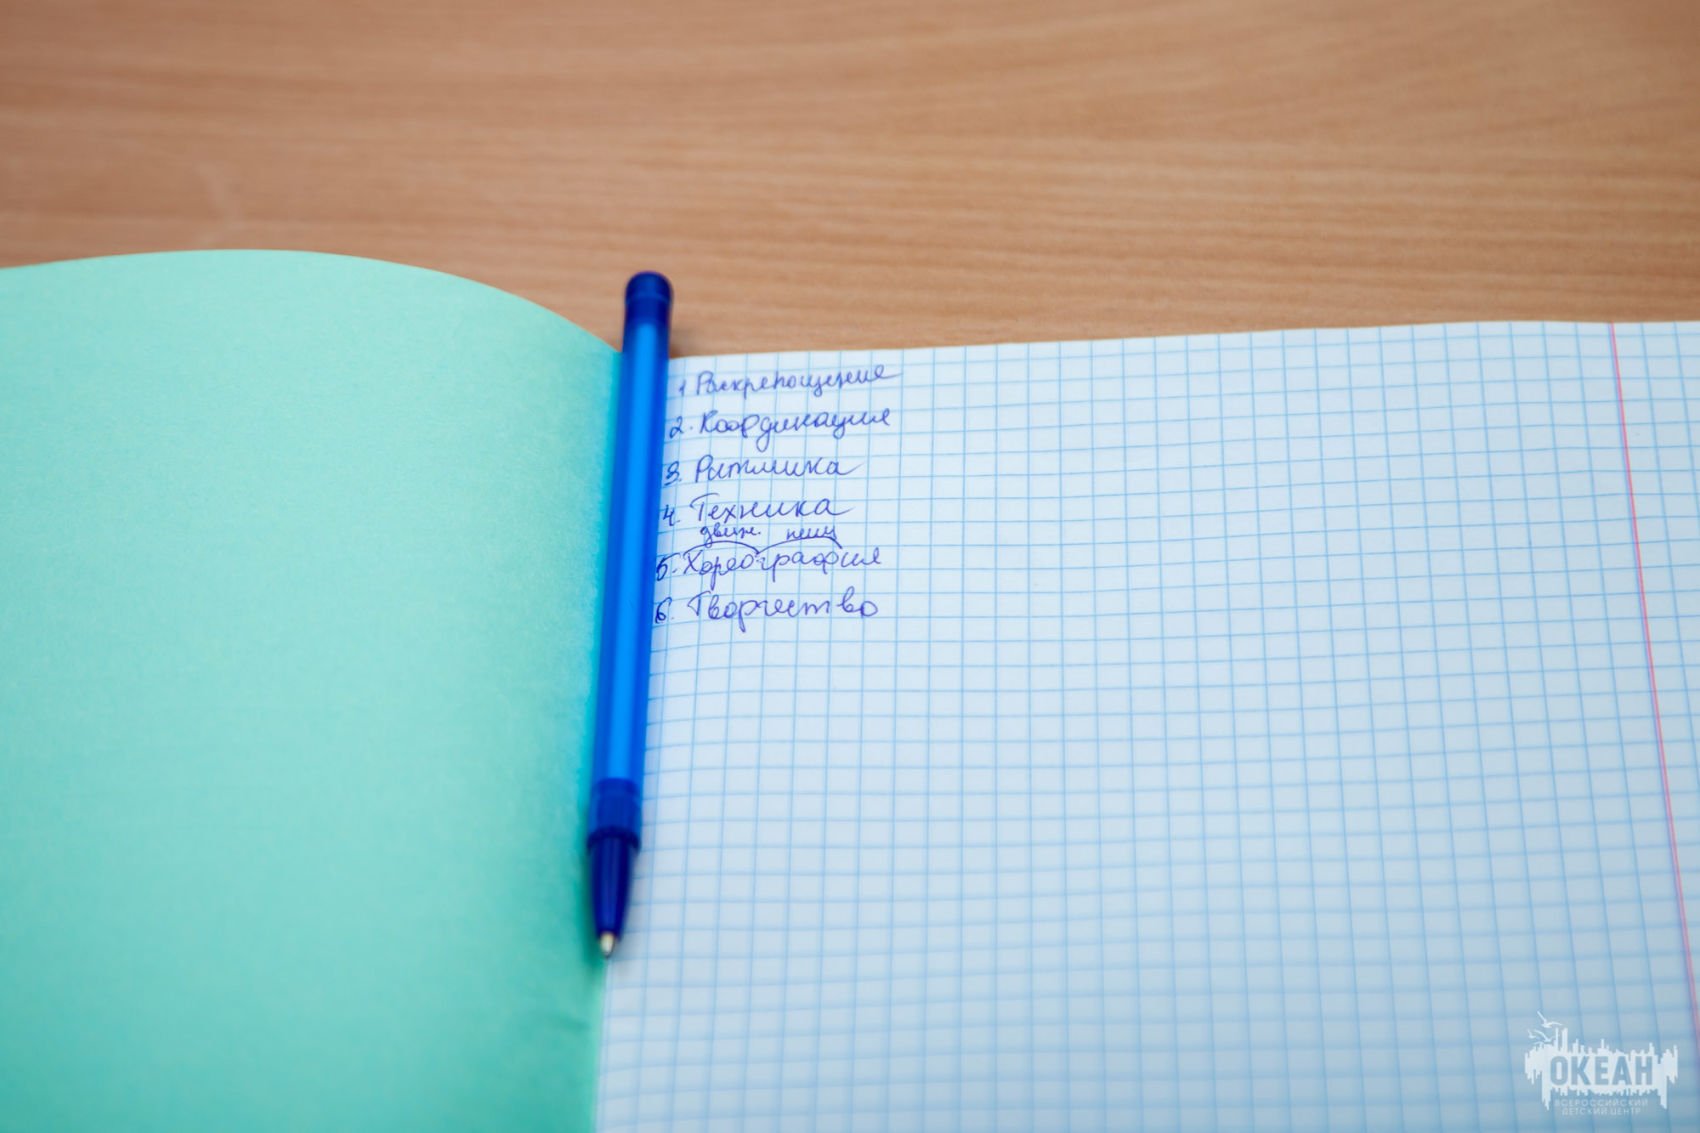 1 Раскрепощение
2. Координация
3. Ритмика
4. Техника
движ. пишу
5. Хореография
6. Творчество
ОКЕАН
ВСЕРОССИЙСКИЙ
ДЕТСКИЙ ЦЕНТР